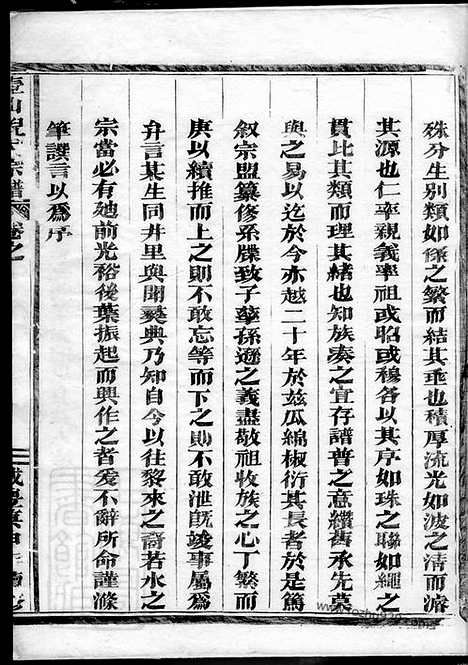 殊分生別類如條之繁而結其垂也積厚流光如波之清而濬
其源也仁率親義率祖或昭或穆各以其序如珠之聯如繩之
貫此其類而理其緒也知族奏之宜存譜普之意纘舊承先慕
與之易以迄於今亦越二十年於玆瓜綿椒衍其長者於是篤
叙宗盟纂修系牒致子孳孫遜之義盡敬祖收族之心丁繁而
庚以續推而上之則不敢忘等而下之則不敢泄旣竣事屬為
弁言某生同井里與聞彝典乃知自今以往黎來之裔若水之
宗當必有她前光裕後葉振起而興作之者爰不辭所命謹滌
筆譔言以為序
壺山倪氏宗譜 卷之
咸豐庚申年